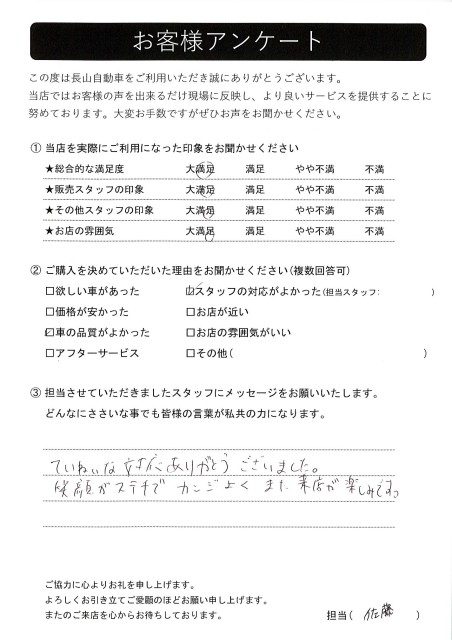 お客様アンケート
この度は長山自動車をご利用いただき誠にありがとうございます。
当店ではお客様の声を出来るだけ現場に反映し、より良いサービスを提供することに
努めております。大変お手数ですがぜひお声をお聞かせください。
① 当店を実際にご利用になった印象をお聞かせください
★総合的な満足度 大満足 満足 やや不満 不満
★販売スタッフの印象 大満足 満足 やや不満 不満
★その他スタッフの印象 大満足 満足 やや不満 不満
★お店の雰囲気 大満足 満足 やや不満 不満
② ご購入を決めていただいた理由をお聞かせください(複数回答可)
□欲しい車があった ☑スタッフの対応がよかった(担当スタッフ: )
□価格が安かった □お店が近い
☑車の品質がよかった □お店の雰囲気がいい
□アフターサービス □その他( )
③ 担当させていただきましたスタッフにメッセージをお願いいたします。
どんなにささいな事でも皆様の言葉が私共の力になります。
ていねいな対応ありがとうございました。
笑顔がステキで カンジよく また 来店が 楽しみです。
ご協力に心よりお礼を申し上げます。
よろしくお引き立てご愛顧のほどお願い申し上げます。
またのご来店を心からお待ちしております。 担当( 佐藤 )